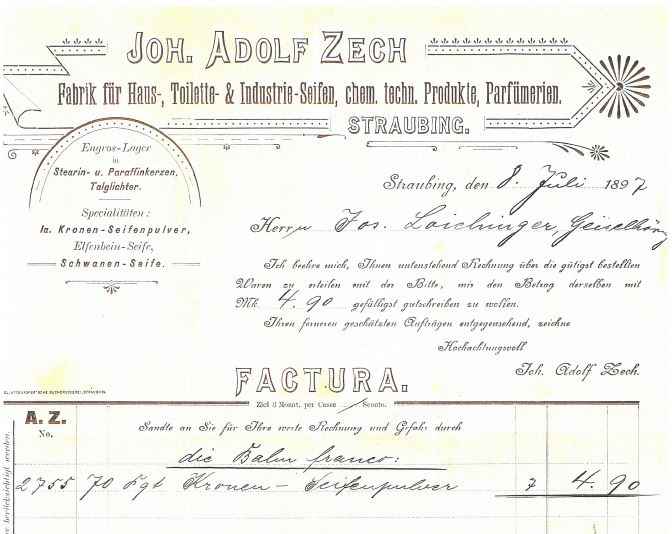 JOH. ADOLF ZECH
Fabrik für Haus-, Toilette- & Industrie-Seifen, chem. techn. Produkte, Parfümerien.
STRAUBING.
Engros-Lager
in
Stearin- u. Paraffinkerzen,
Talglichter.
Specialitäten:
Ia. Kronen-Seifenpulver,
Elfenbein-Seife,
Schwanen-Seife.
Straubing, den 8. Juli 1897
Herrn Jos. Loichinger, Geiselhöring
Ich beehre mich, Ihnen untenstehend Rechnung über die gütigst bestellten
Waren zu erteilen mit der Bitte, mir den Betrag derselben mit
Mk. 4.90 gefälligst gutschreiben zu wollen.
Ihren ferneren geschätzten Aufträgen entgegensehend, zeichne
Hochachtungsvoll
Joh. Adolf Zech.
FACTURA.
Ziel 3 Monat, per Cassa Sconto.
A. Z.
No.
Sandte an Sie für Ihre werte Rechnung und Gefahr durch
die Bahn franco:
2755 70 Pgt Kronen-Seifenpulver 7 4.90
berücksichtigt werden.